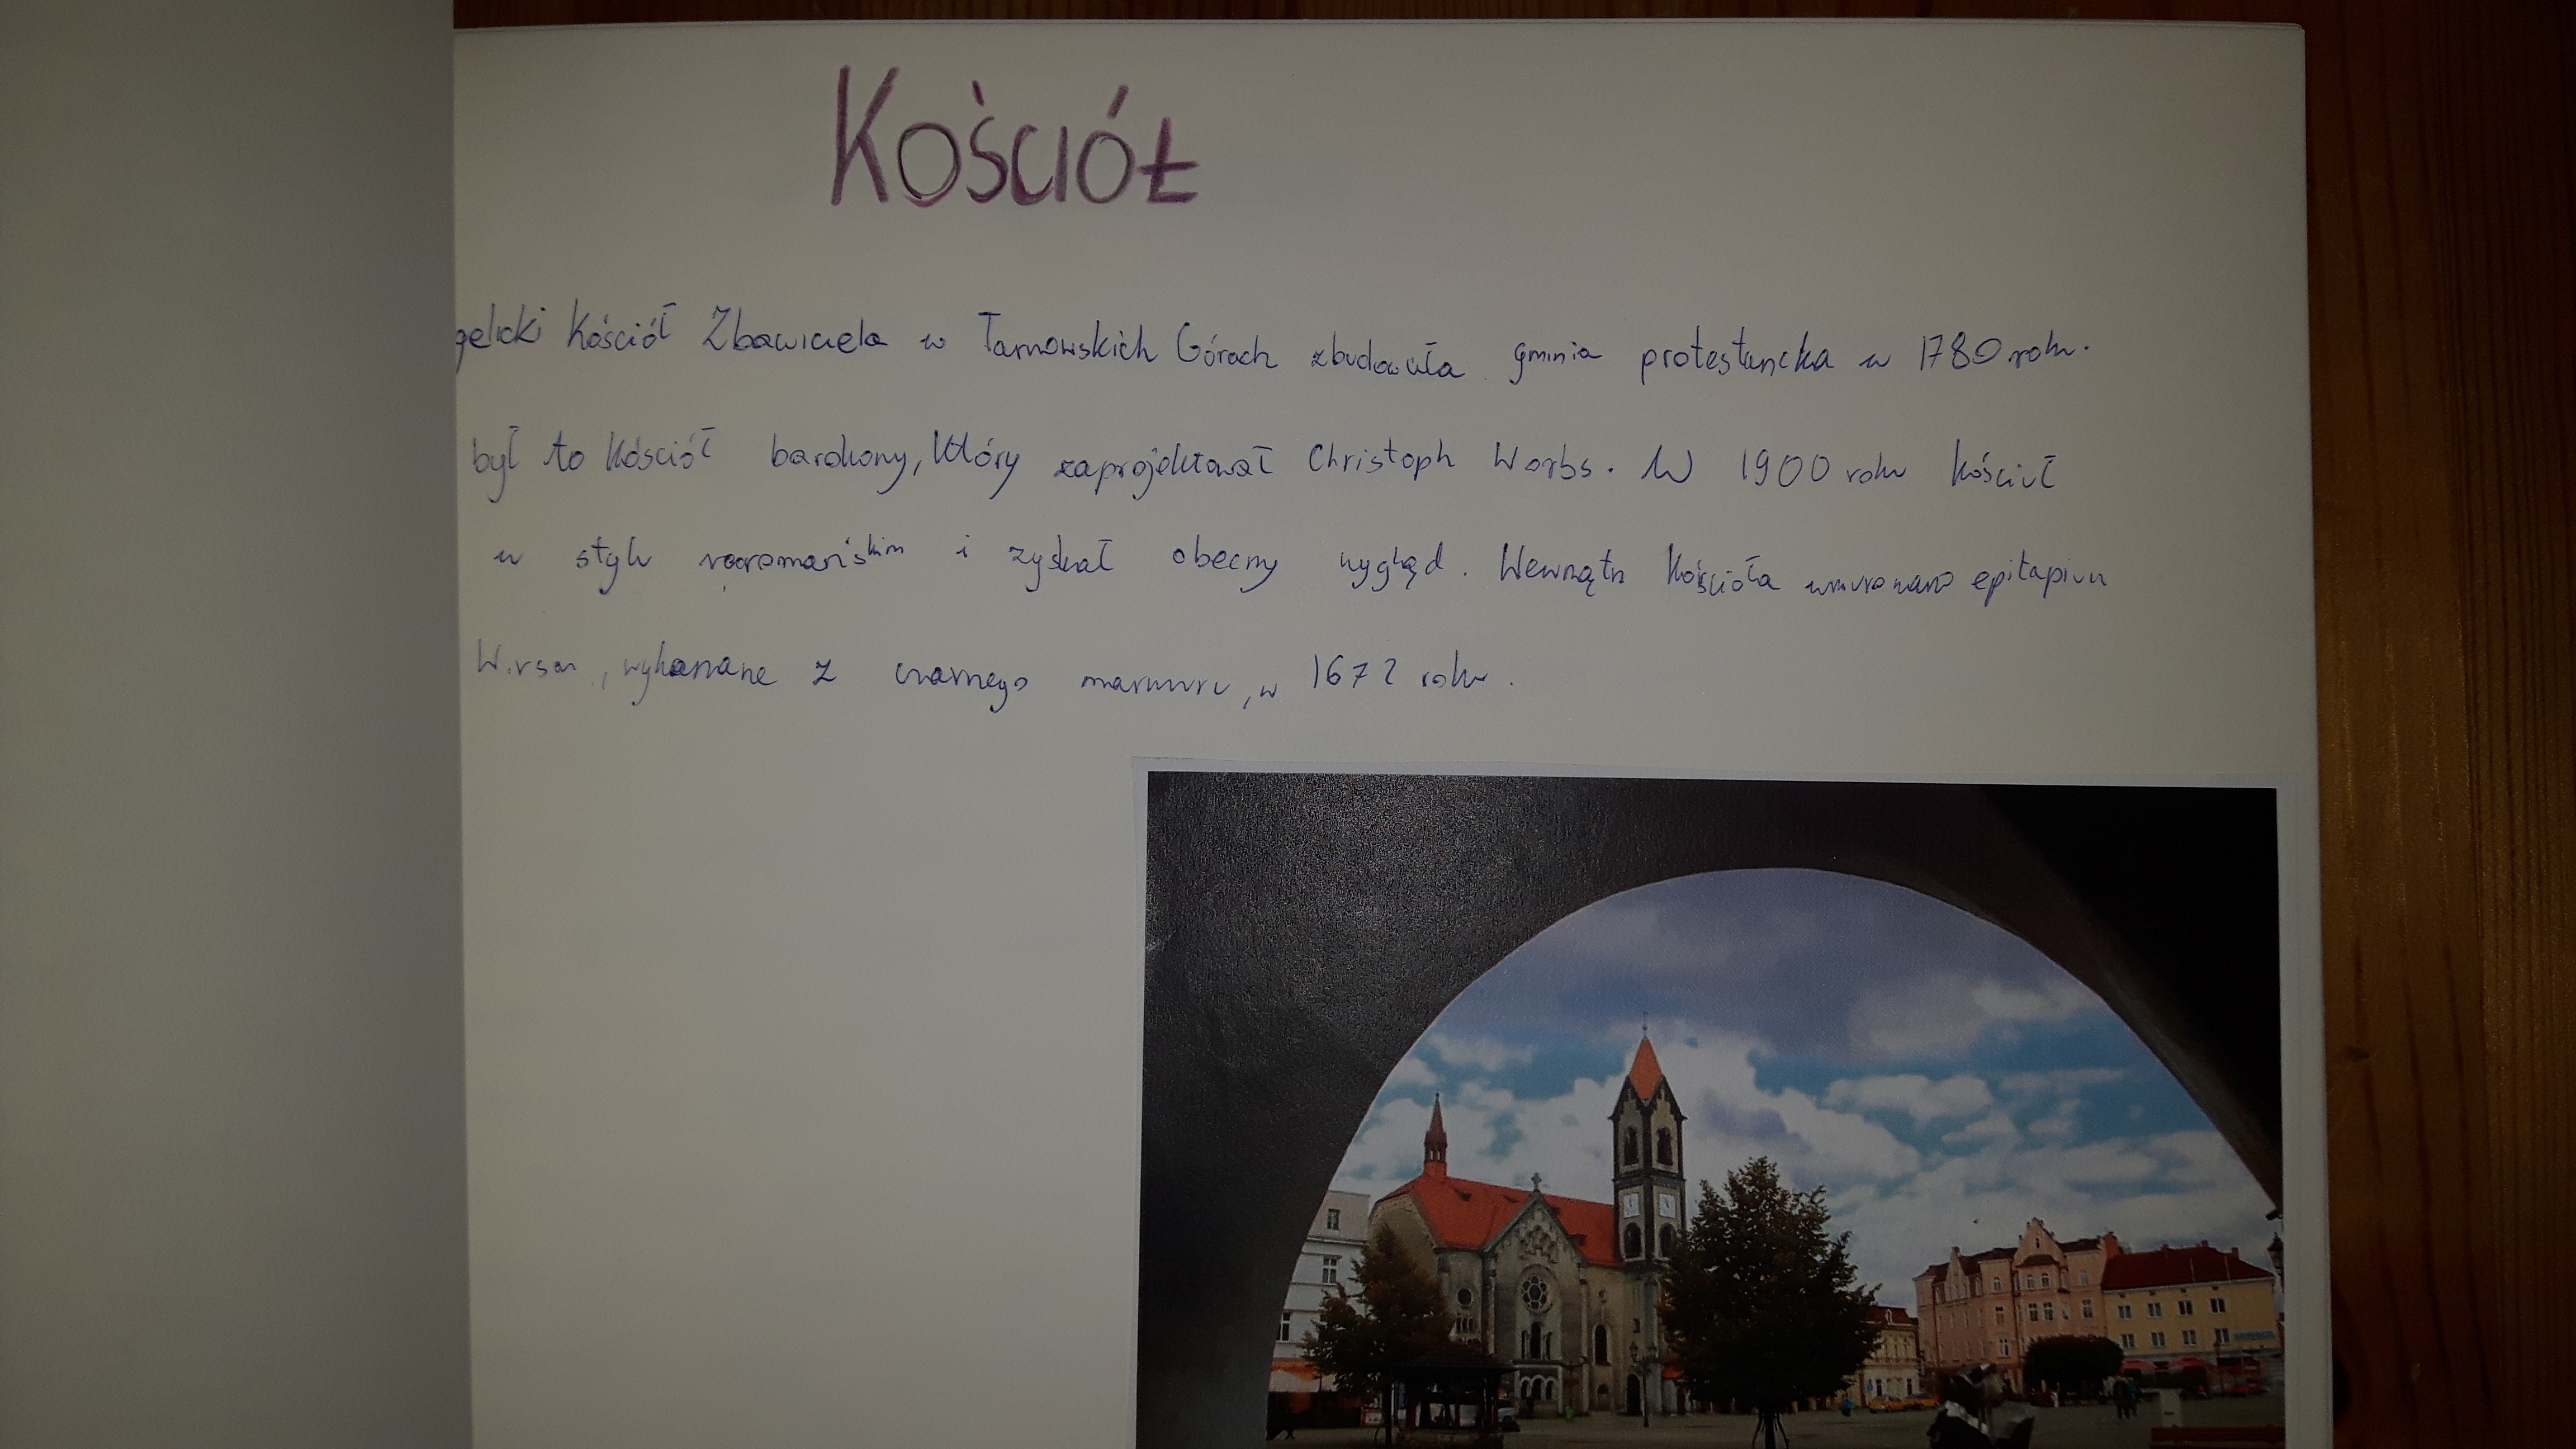 Kościół
gelicki Kościół Zbawiciela w Tarnowskich Górach zbudowała gminia protestancka w 1780 roku.
był to Kościół barokowy, który zaprojektował Christoph Worbs. W 1900 roku kościół
w stylu neoromańskim i zyskał obecny wygląd. Wewnątrz kościoła wmurowano epitapium
wykonane z czarnego marmuru, w 1672 roku.